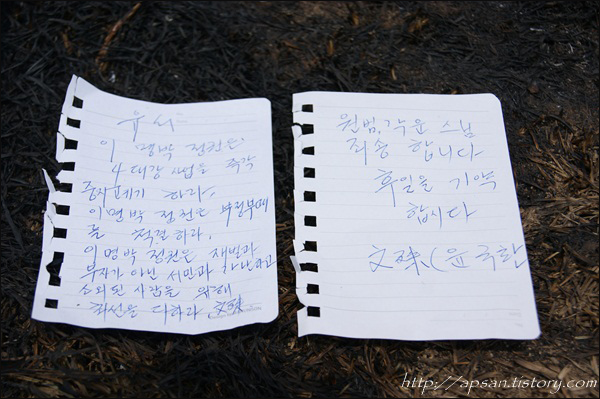 유서
이 명박 정권은
4대강 사업을 즉각
중지 폐기 하라.
이명박 정권은 부정부패
를 척결하라.
이명박 정권은 재벌과
부자가 아닌 서민과 가난하고
소외된 사람을 위해
최선을 다하라 文殊
원범, 각운 스님
죄송 합니다
후일을 기약
합시다
文殊(윤국환
http://apsan.tistory.com